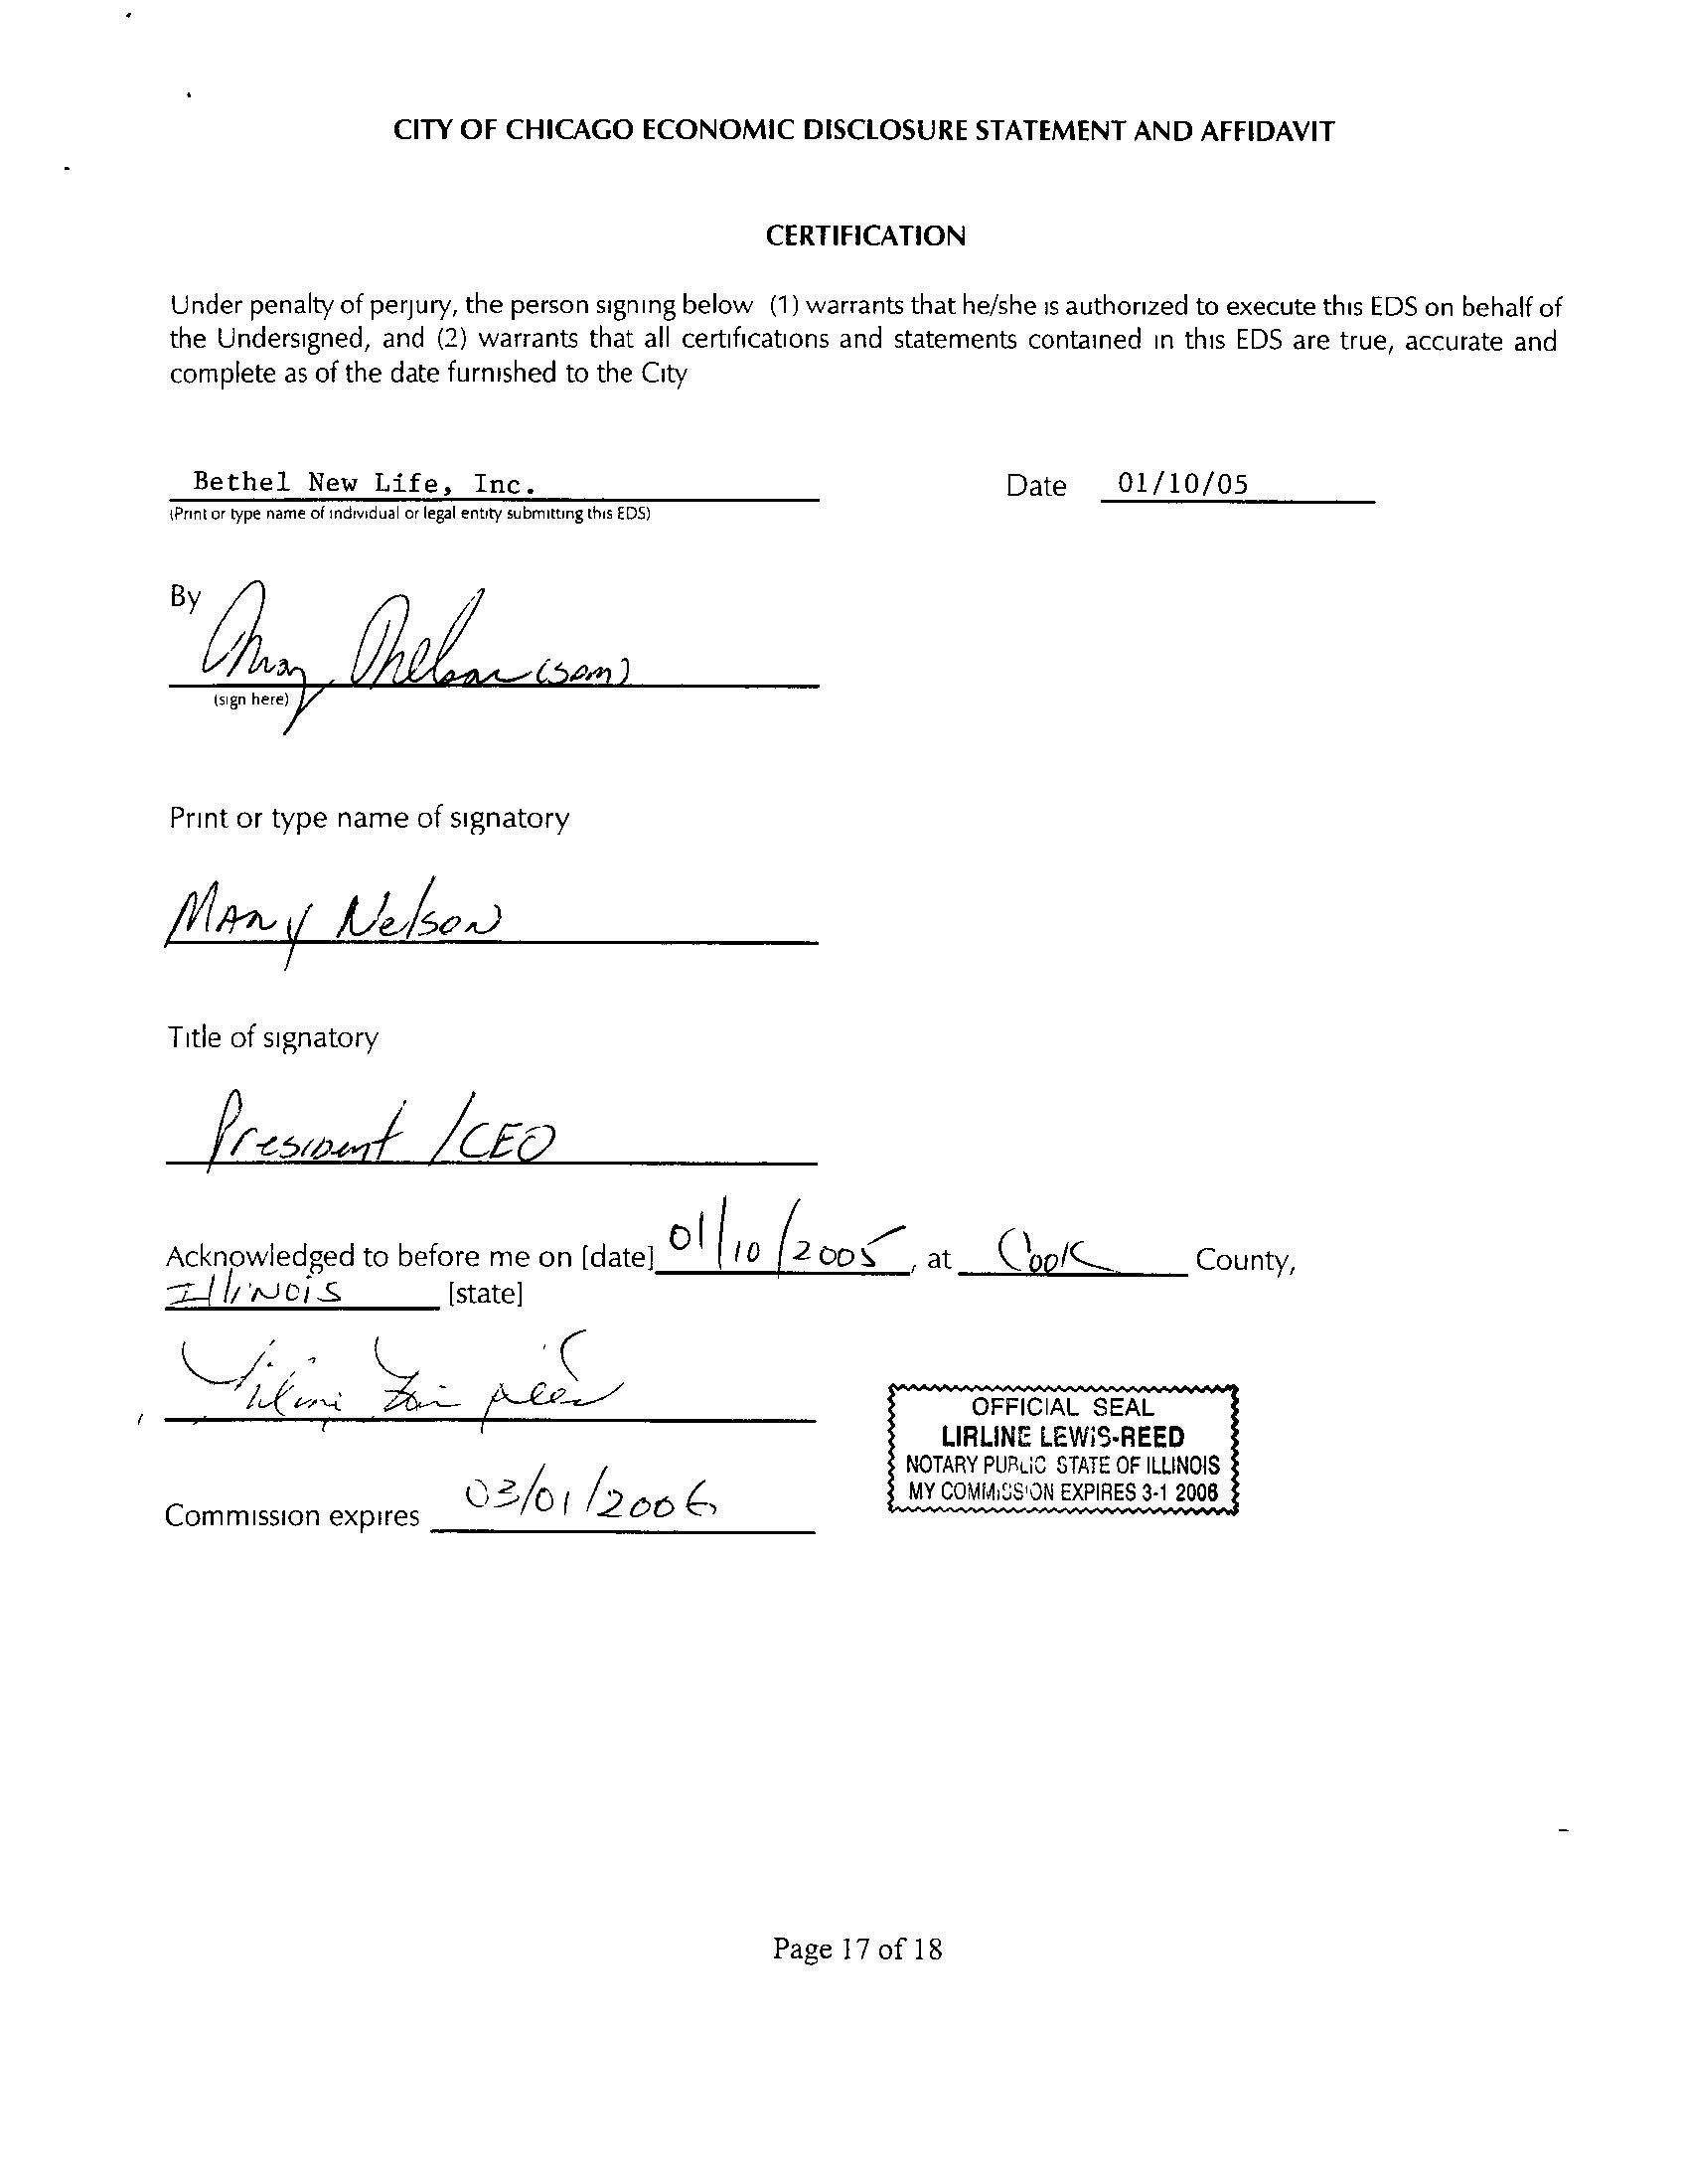 CITY OF CHICAGO ECONOMIC DISCLOSURE STATEMENT AND AFFIDAVIT
CERTIFICATION
Under penalty of perjury, the person signing below (1) warrants that he/she is authorized to execute this EDS on behalf of
the Undersigned, and (2) warrants that all certifications and statements contained in this EDS are true, accurate and
complete as of the date furnished to the City
Bethel New Life, Inc.
Date 01/10/05
(Print or type name of individual or legal entity submitting this EDS)
By
Mary Nelson (sam)
(sign here)
Print or type name of signatory
MARY Nelson
Title of signatory
President /CEO
Acknowledged to before me on [date] 01/10/2005, at Cook County,
Illinois [state]
OFFICIAL SEAL
LIRLINE LEWIS-REED
NOTARY PUBLIC STATE OF ILLINOIS
MY COMMISSION EXPIRES 3-1 2006
Commission expires 03/01/2006
Page 17 of 18